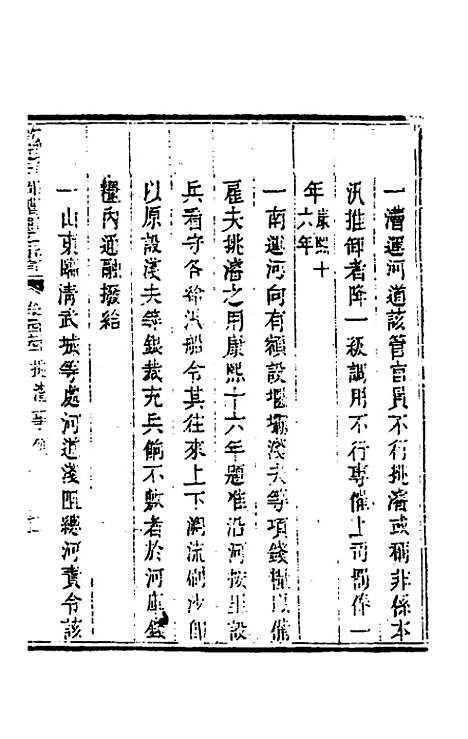 一漕運河道該管官員不行挑濬或稱非係本
汛推卸者降一級調用不行專催上司罰俸一
年康熙十六年
一南運河向有額設堰壩淺夫等項錢糧以備
雇夫挑濬之用康熙十六年題准沿河按里設
兵看守各給汛船令其往來上下溯流刷沙即
以原設淺夫等銀裁充兵餉不敷者於河庫錢
糧內通融撥給
一山東臨清武城等處河道淺阻總河責令該
挑濬事例